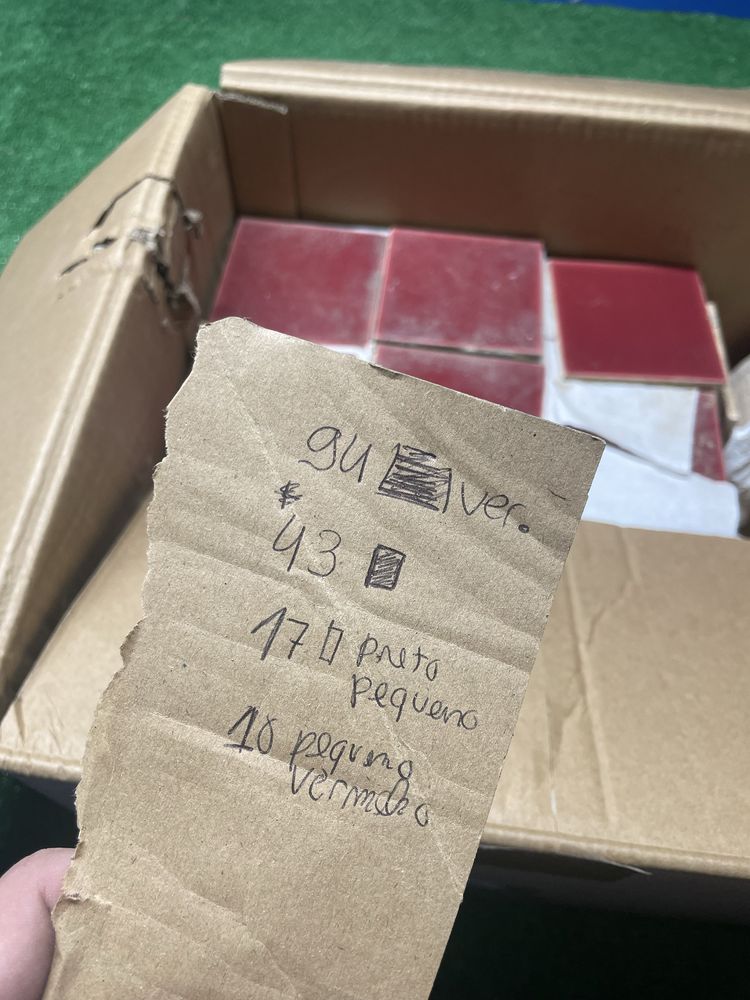 94 ver.
43
17 preto
pequeno
10 pequeno
vermelho